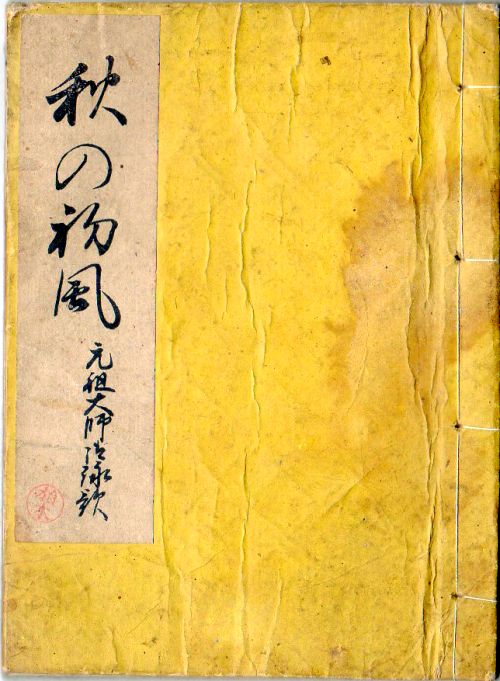 秋の初風
元祖大師御詠歌